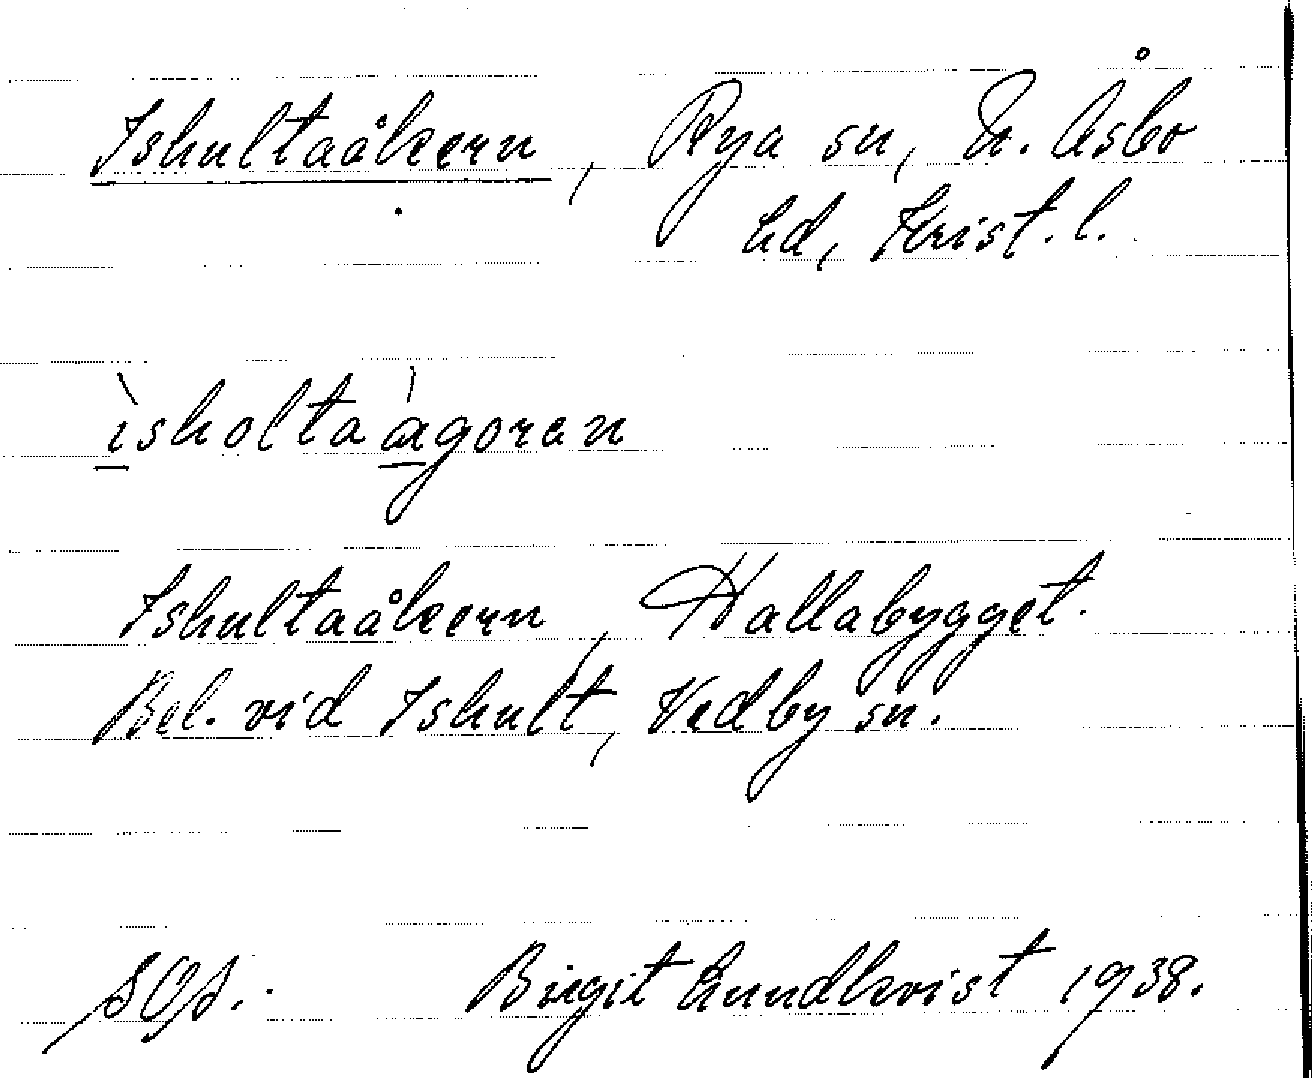 Ishultaåkern, Rya sn, N. Åsbo
hd, Krist. l.
ìsholtaàgoran
Ishultaåkern, Hallabygget.
Bel. vid Ishult, Vedby sn.
SOS. Birgit Lundkvist 1938.